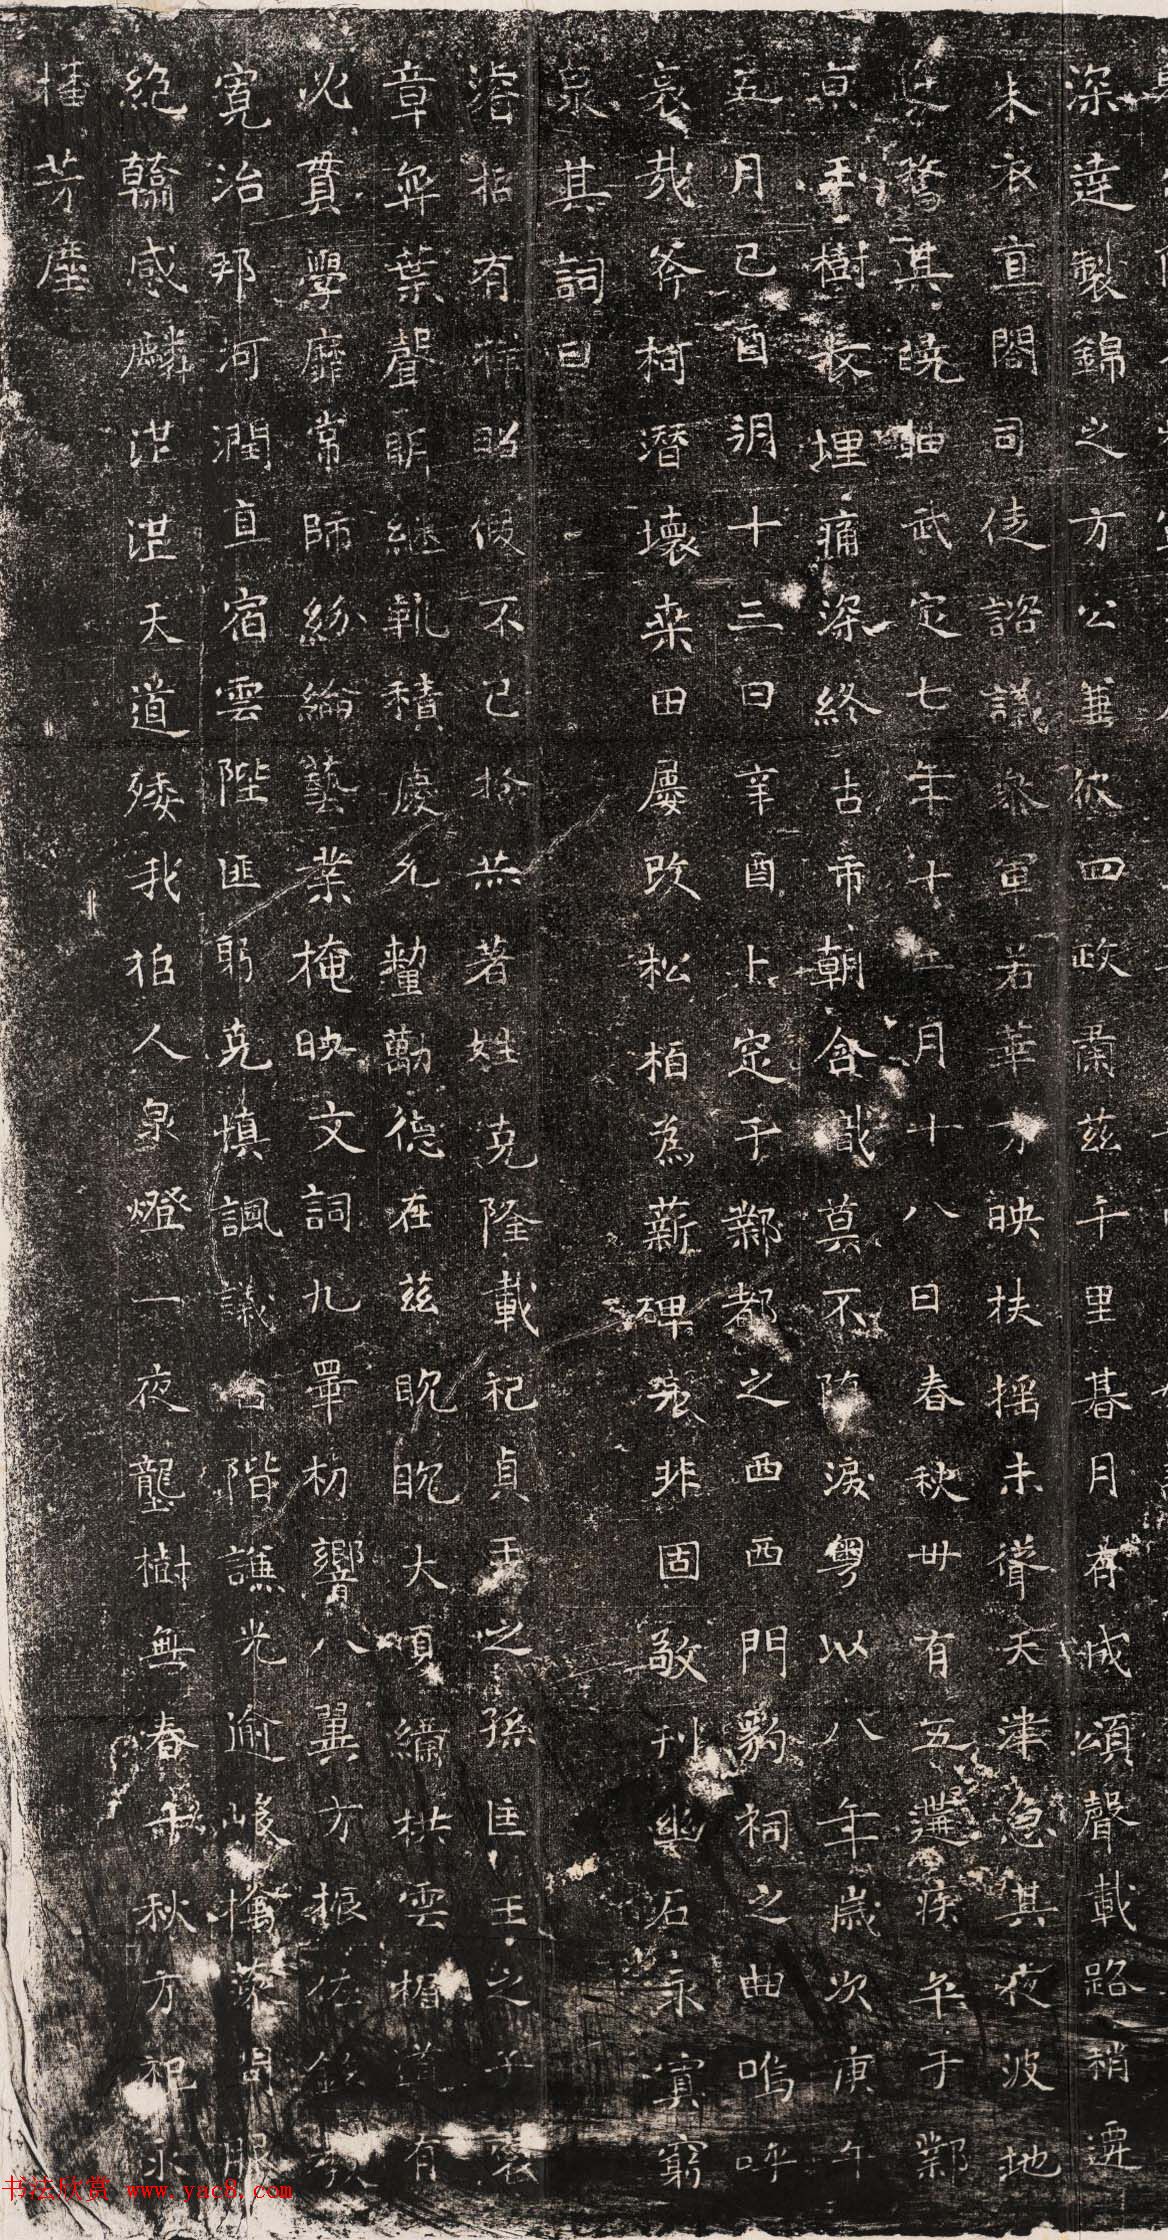 深達製錦之方公兼彼四政肅茲千里朞月有成頌聲載路稍遷
朱衣直閤司徒諮議參軍若華方映扶搖未聳天津急其夜波地
驚其曉軸武定七年十二月十八日春秋卅有五遘疾卒于鄴
京玉樹長埋痛深終古市朝會哉莫不隕淚粵以八年歲次庚午
五月己酉朔十三日辛酉卜定于鄴都之西西門豹祠之曲嗚呼
哀哉斧柯潛壞桒田屢改松栢為薪碑表非固敬刊幽石永寘窮
泉其詞曰
濬招有祥昭假不已於燕著姓克隆載祀貞王之孫匡王之子
章弈葉聲明繼軌積慶允釐勤德在茲眈眈大夏綉栱雲楣道有
必貫學靡常師紛綸藝業掩映文詞九罩初響八翼方振佐
寬治邦河潤直宿雲陛匪躬克填諷議台階譙光逾峻
絶韓感麟茫茫天道殘我柏人泉燈一夜壟樹無春千秋方祀永
播芳塵
书法欣赏 www.yac8.com